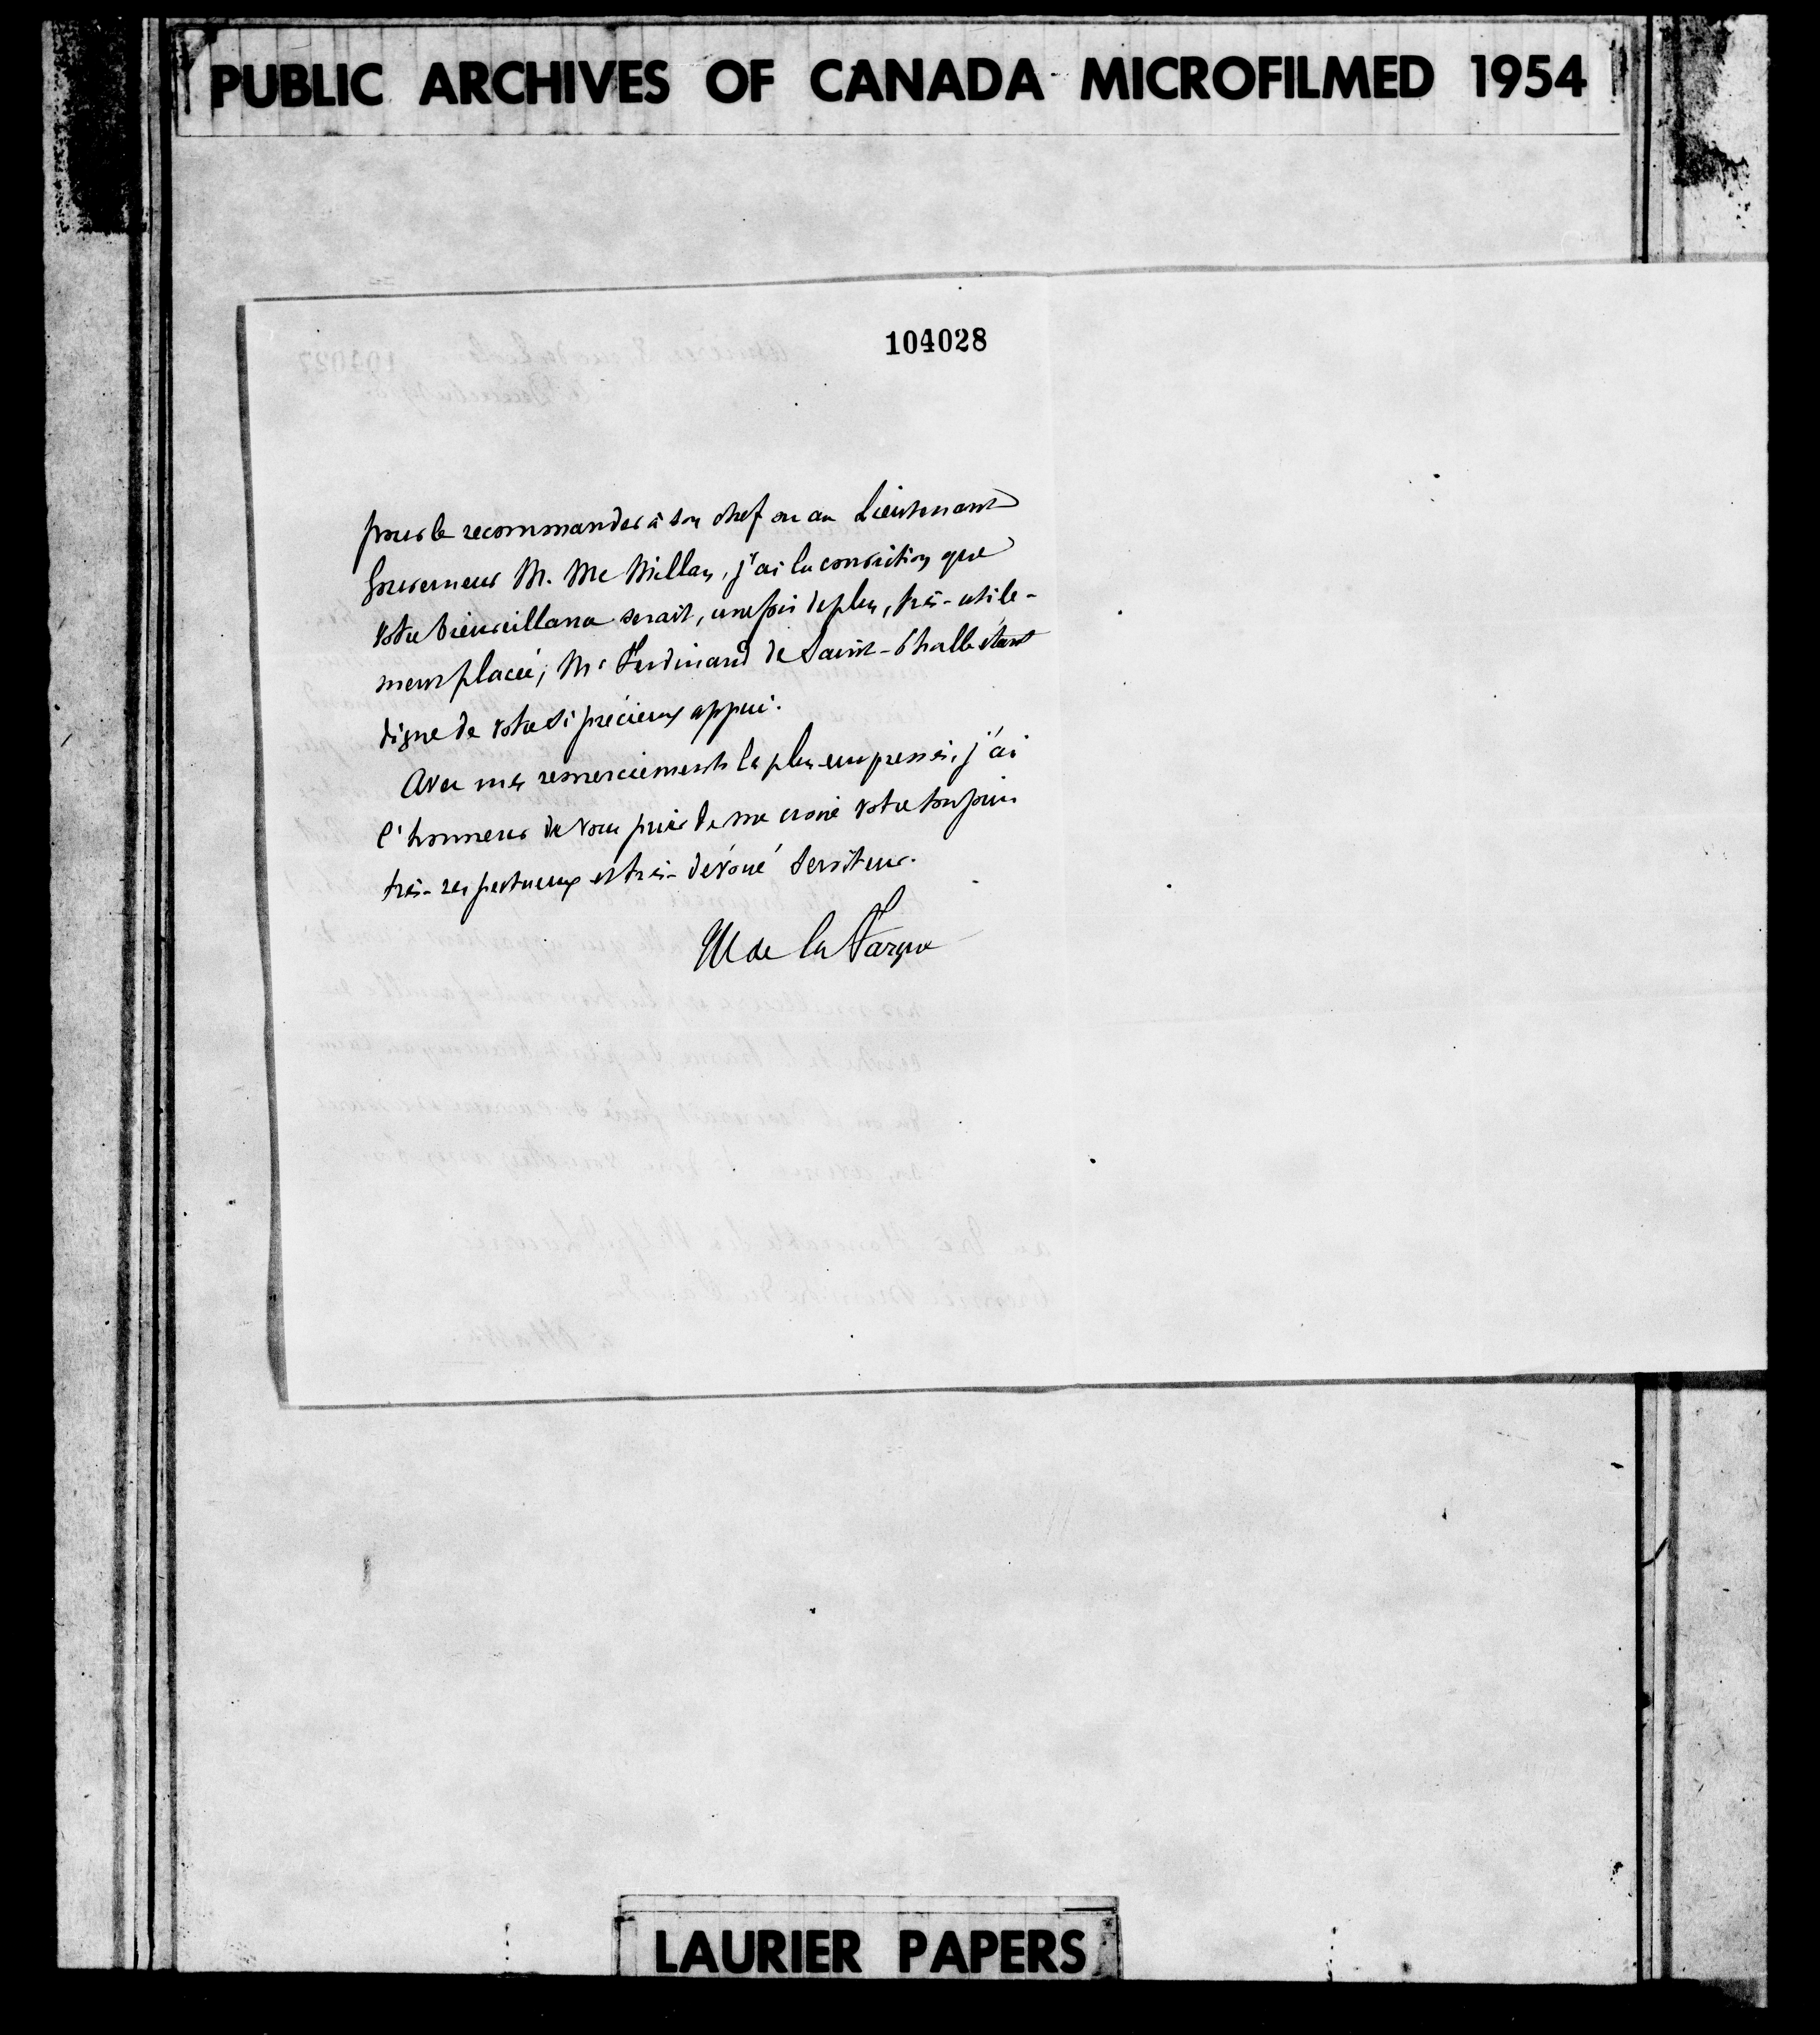 PUBLIC ARCHIVES OF CANADA MICROFILMED 1954
104028
pour le recommander à son chef ou au Lieutenant
Gouverneur M. Mc Millan, j'ai la conviction que
votre bienveillance serait, une fois de plus, très-utile-
ment placée, Mr Ferdinand de Saint-Thalle étant
digne de votre si précieux appui.
Avec mes remerciements les plus empressés, j'ai
l'honneur de vous prier de me croire votre toujours
très-respectueux et très-dévoué serviteur.
M de la Fargue
LAURIER PAPERS